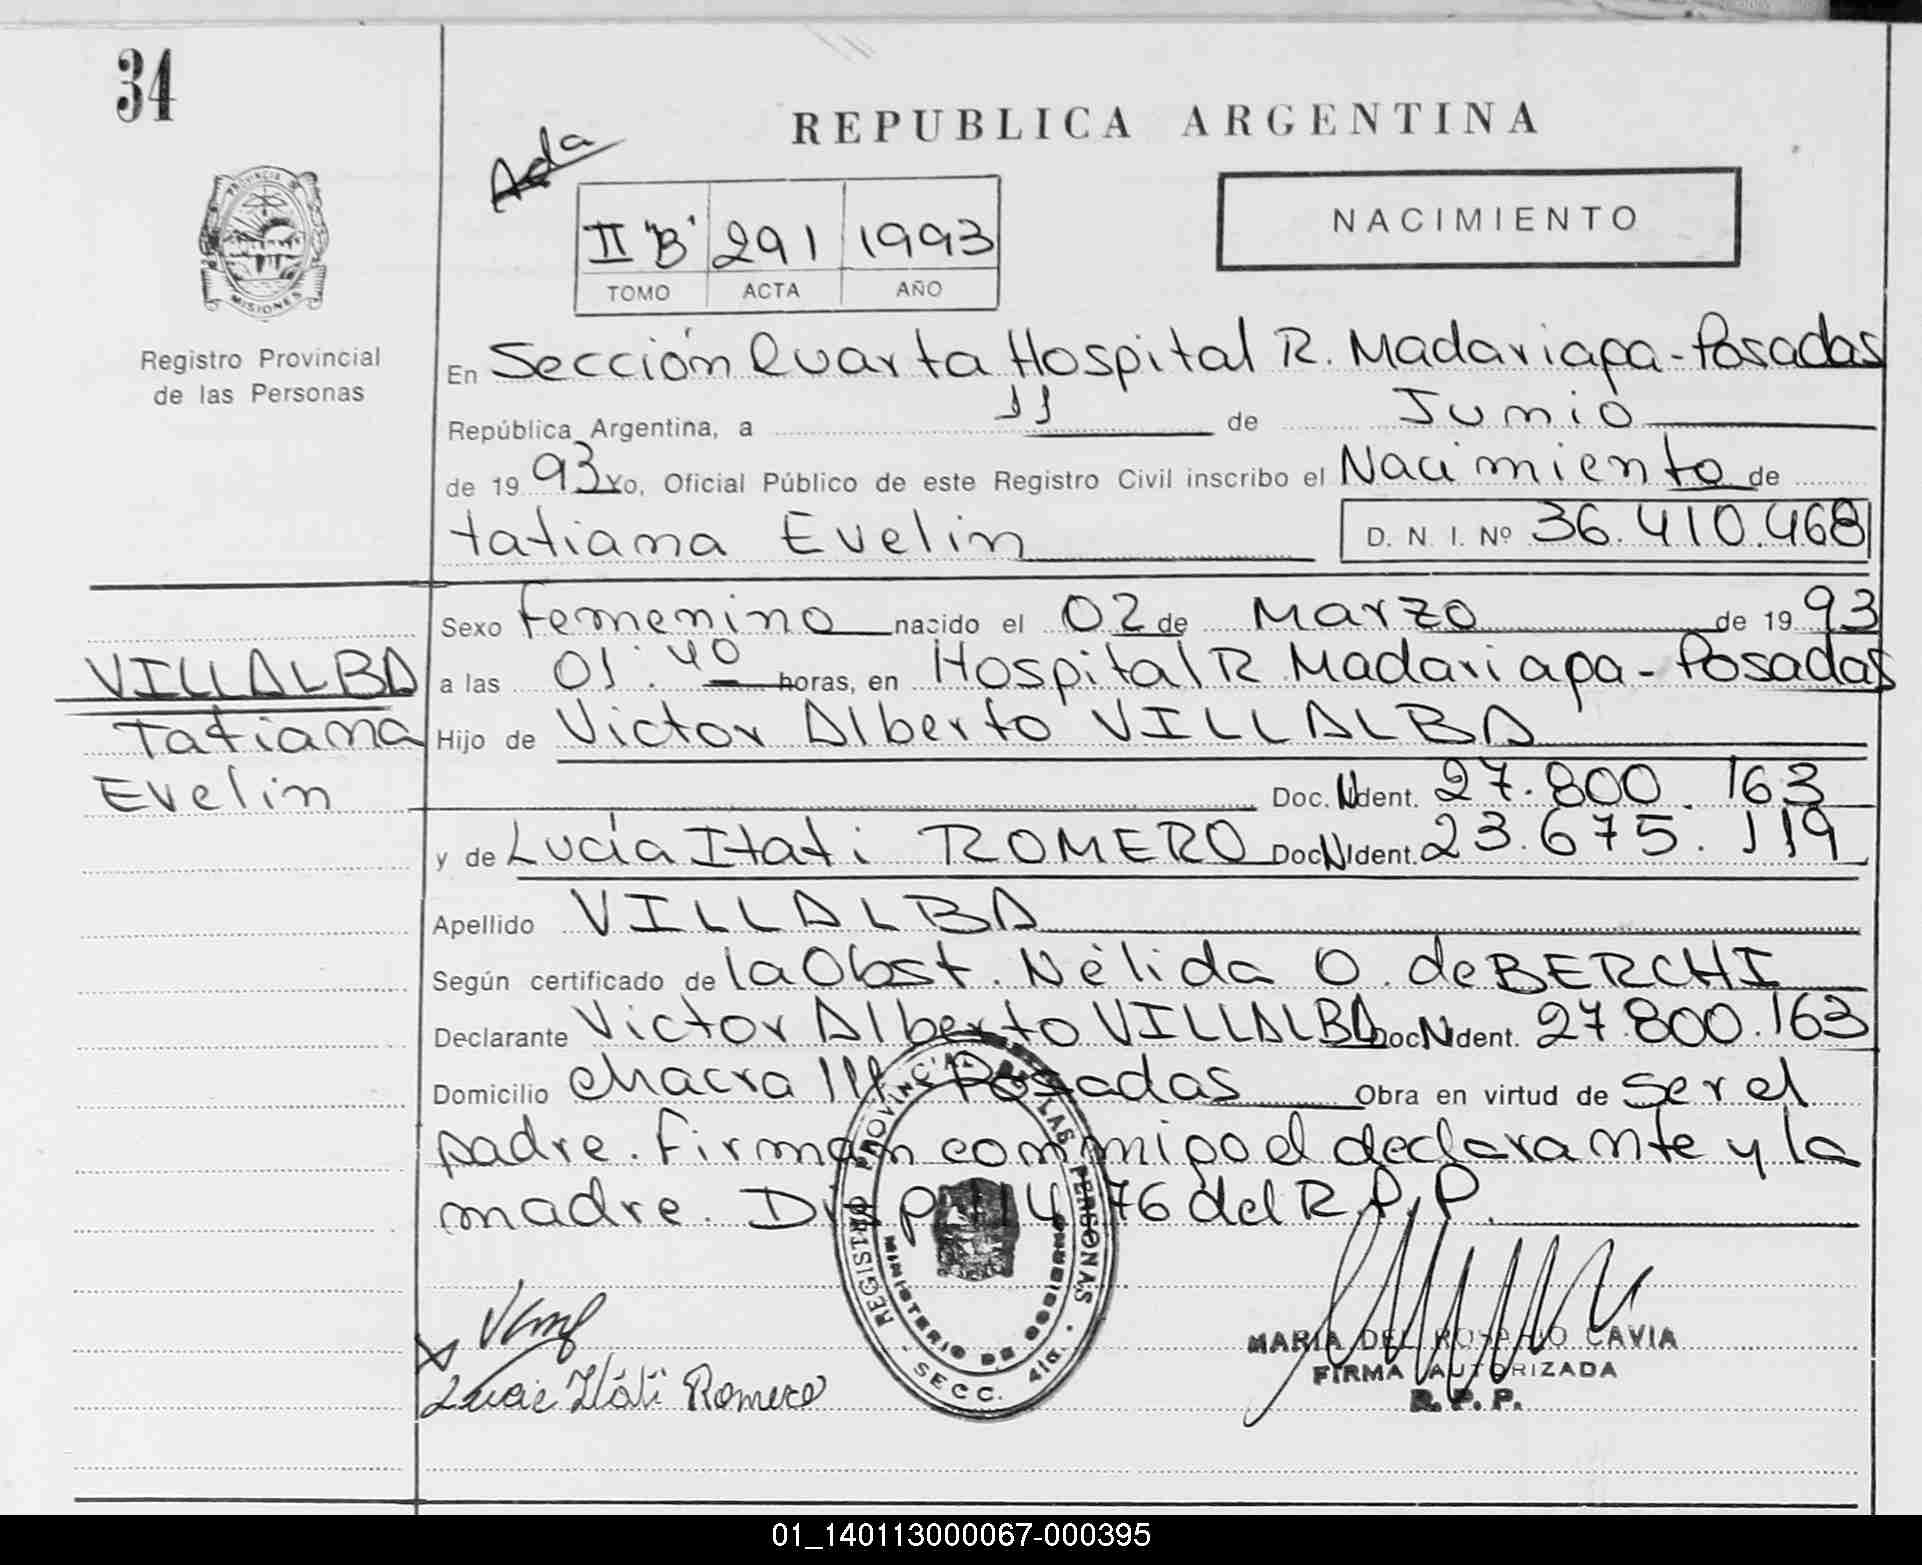 34
REPUBLICA ARGENTINA
Ada
II "B" 291 1993
TOMO ACTA AÑO
NACIMIENTO
PROVINCIA DE MISIONES
Registro Provincial
de las Personas
En Sección Quarta Hospital R. Madariaga - Posadas
República Argentina, a 11 de Junio
de 19 93 Yo, Oficial Público de este Registro Civil inscribo el Nacimiento de
tatiana Evelin D. N. I. Nº 36.410.468
Sexo femenino nacido el 02 de Marzo de 19 93
a las 01:40 horas, en Hospital R. Madariaga - Posadas
VILLALBA
Tatiana
Evelin
Hijo de Victor Alberto VILLALBA
Doc. N Ident. 27.800.163
y de Lucía Itati ROMERO Doc N Ident. 23.675.119
Apellido VILLALBA
Según certificado de la Obst. Nélida O. de BERCHI
Declarante Victor Alberto VILLALBA Doc N Ident. 27.800.163
Domicilio chacra 111 - Posadas Obra en virtud de ser el
padre. firman conmigo el declarante y la
madre. 76 del R.P.P.
REGISTRO PROVINCIAL DE LAS PERSONAS
MINISTERIO DE GOBIERNO
- SECC. 4ta. -
Lucia Itáti Romero
MARIA DEL ROSARIO CAVIA
FIRMA AUTORIZADA
R. P. P.
01_140113000067-000395